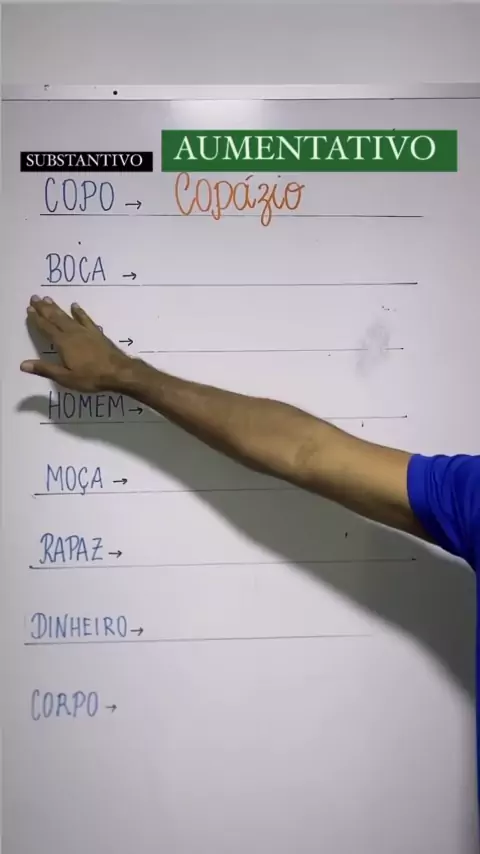 SUBSTANTIVO AUMENTATIVO
COPO → Copázio
BOCA →
→
HOMEM →
MOÇA →
RAPAZ →
DINHEIRO →
CORPO →